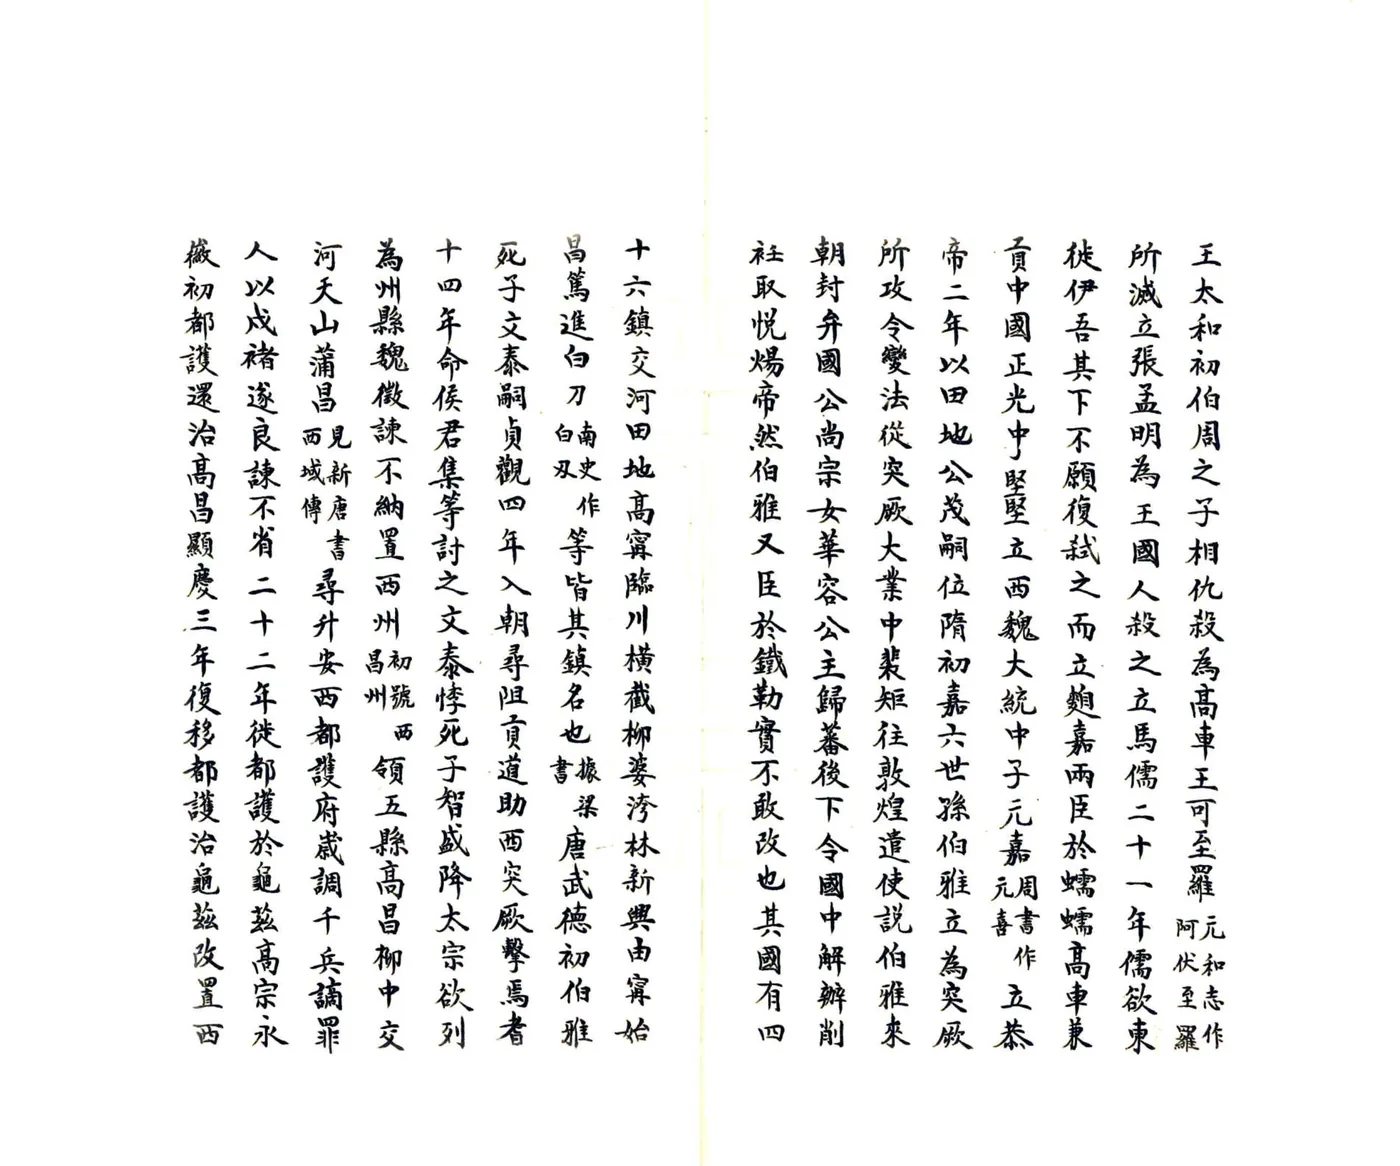 王太和初伯周之子相仇殺為高車王可至羅元和志作阿伏至羅
所滅立張孟明為王國人殺之立馬儒二十一年儒欲東
徙伊吾其下不願復弒之而立麴嘉兩臣於蠕蠕高車兼
貢中國正光中堅堅立西魏大統中子元嘉周書作元喜立恭
帝二年以田地公茂嗣位隋初嘉六世孫伯雅立為突厥
所攻令變法從突厥大業中裴矩往敦煌遣使説伯雅來
朝封弁國公尚宗女華容公主歸蕃後下令國中解辮削
衽取悅煬帝然伯雅又臣於鐵勒實不敢改也其國有四
十六鎮交河田地高寗臨川橫截柳婆洿林新興由寗始
昌篤進白刀南史作白刃等皆其鎮名也據梁書唐武德初伯雅
死子文泰嗣貞觀四年入朝尋阻貢道助西突厥擊焉耆
十四年命侯君集等討之文泰悸死子智盛降太宗欲列
為州縣魏徵諫不納置西州初號西昌州領五縣高昌柳中交
河天山蒲昌見新唐書西域傳尋升安西都護府歲調千兵謫罪
人以戍褚遂良諫不省二十二年徙都護於龜茲高宗永
徽初都護還治高昌顯慶三年復移都護治龜茲改置西